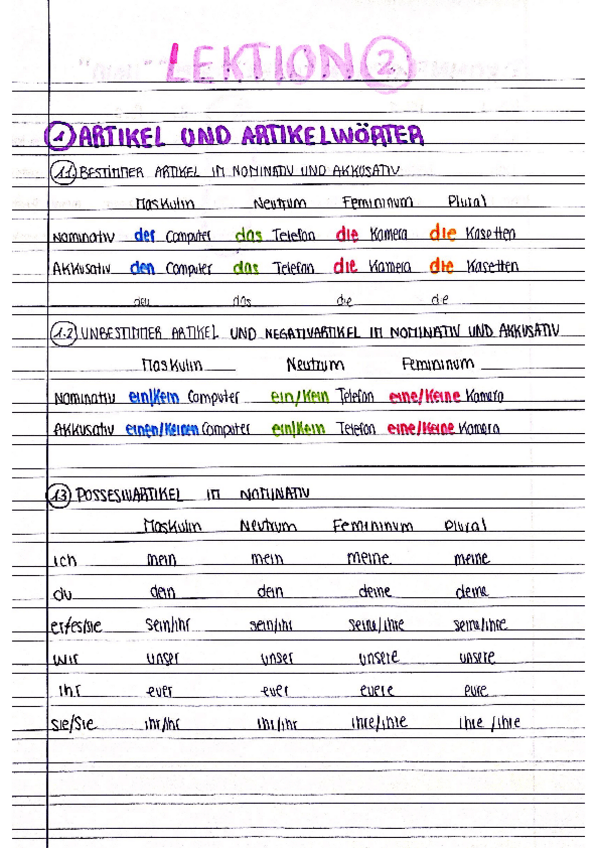 LEKTION 2
1 ARTIKEL UND ARTIKELWÖRTER
1.1 BESTIMMER ARTIKEL IM NOMINATIV UND AKKUSATIV
Maskulin Neutrum Femininum Plural
Nominativ der Computer das Telefon die Kamera die Kasetten
Akkusativ den Computer das Telefon die Kamera die Kasetten
den das die die
1.2 UNBESTIMMER ARTIKEL UND NEGATIVARTIKEL IM NOMINATIV UND AKKUSATIV
Maskulin Neutrum Femininum
Nominativ ein/kein Computer ein/kein Telefon eine/keine Kamera
Akkusativ einen/keinen Computer ein/kein Telefon eine/keine Kamera
1.3 POSSESIVARTIKEL IM NOMINATIV
Maskulin Neutrum Femininum Plural
ich mein mein meine meine
du dein dein deine deine
er/es/sie sein/ihr sein/ihr seine/ihre seine/ihre
wir unser unser unsere unsere
ihr euer euer euere eure
sie/Sie ihr/Ihr ihr/Ihr ihre/Ihre ihre/Ihre